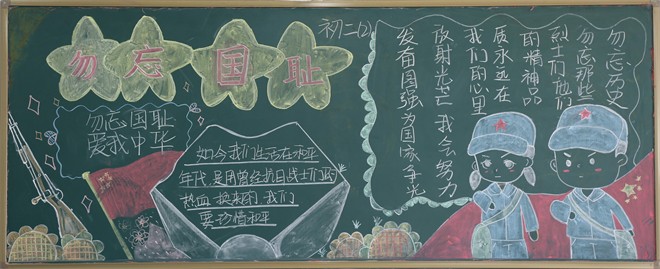 勿忘国耻
初二(2)
勿忘国耻
爱我中华
如今我们生活在和平
年代,是用曾经抗日战士们的
热血换来的,我们
要珍惜和平
勿忘历史
勿忘那些
烈士们,他们
的精神品
质永远在
我们的心里
放射光芒 我会努力
发奋图强 为国家争光